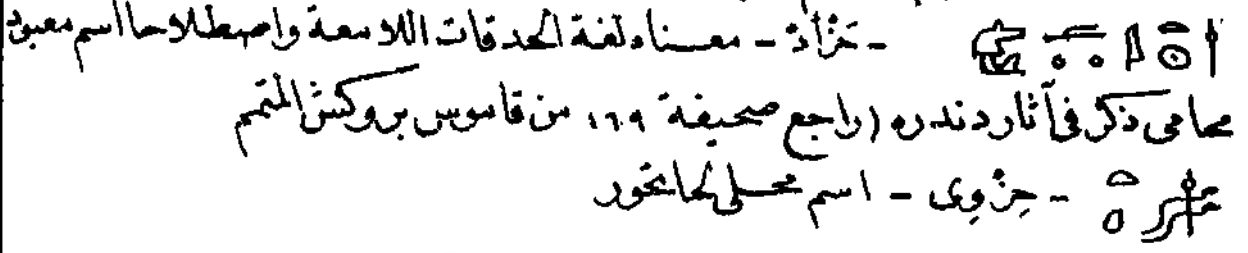 - حَزْأَدْ - معناه لغة الحدقات اللامعة واصطلاحا اسم معبود
محامى ذكر فى آثار دندره (راجع صحيفة ١٦٩ من قاموس بروكش المتمم
- حِزْوِى - اسم محلى لحاتحور